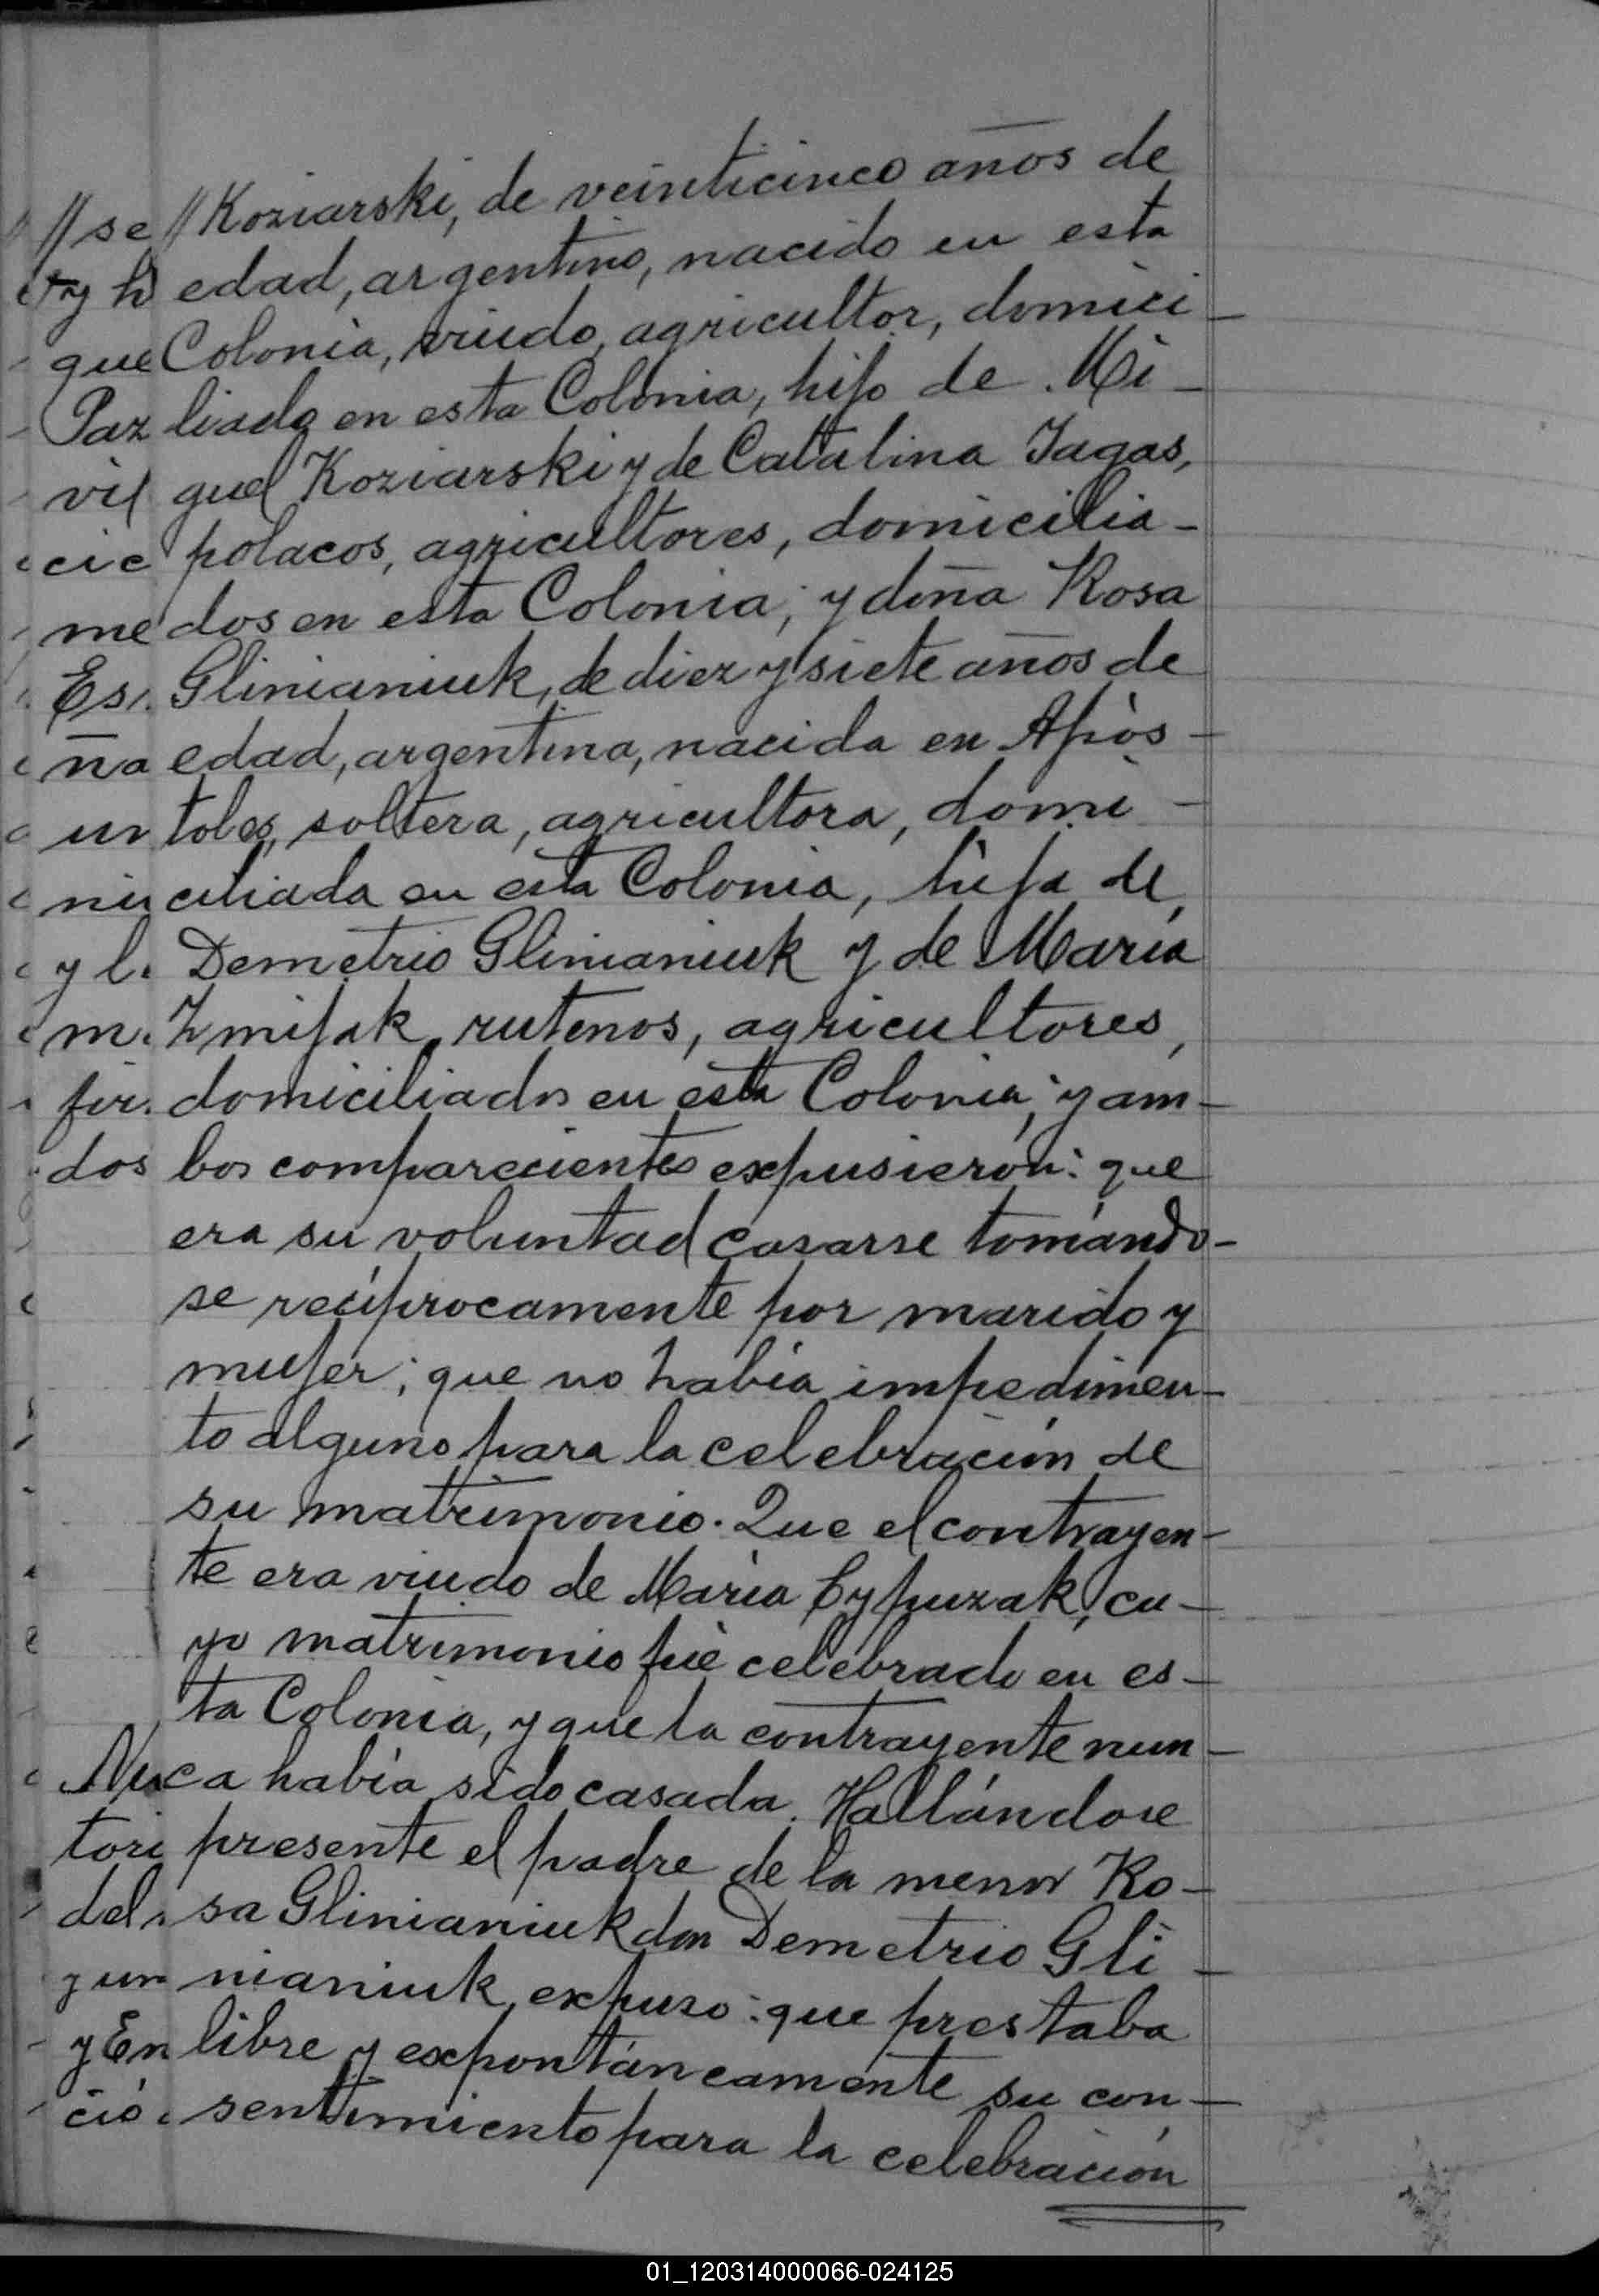 //Koziarski, de veinticinco años de
edad, argentino, nacido en esta
Colonia, viudo, agricultor, domici-
liado en esta Colonia, hijo de Mi-
guel Koziarski y de Catalina Jagas,
polacos, agricultores, domicilia-
dos en esta Colonia; y doña Rosa
Glinianiuk, de diez y siete años de
edad, argentina, nacida en Após-
toles, soltera, agricultora, domi-
ciliada en esta Colonia, hija de
Demetrio Glinianiuk y de María
Zmijak, rutenos, agricultores,
domiciliados en esta Colonia; y am-
bos comparecientes expusieron: que
era su voluntad casarse tomándo-
se recíprocamente por marido y
mujer; que no había impedimen-
to alguno para la celebración de
su matrimonio. Que el contrayen-
te era viudo de María, cu-
yo matrimonio fué celebrado en es-
ta Colonia, y que la contrayente nun-
ca había sido casada. Hallándose
presente el padre de la menor Ro-
sa Glinianiuk don Demetrio Gli-
nianiuk, expuso: que prestaba
libre y expontáneamente su con-
sentimiento para la celebración
01_120314000066-024125